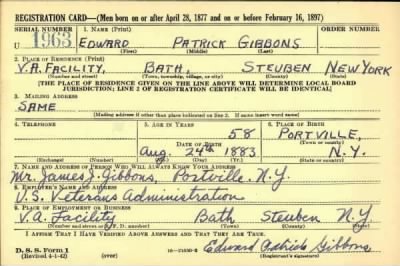 REGISTRATION CARD—(Men born on or after April 28, 1877 and on or before February 16, 1897)
SERIAL NUMBER 1. NAME (Print) ORDER NUMBER
U 1963 EDWARD PATRICK GIBBONS
(First) (Middle) (Last)
2. PLACE OF RESIDENCE (Print)
V.A. FACILITY, BATH, STEUBEN NEW YORK
(Number and street) (Town, township, village, or city) (County) (State)
[THE PLACE OF RESIDENCE GIVEN ON THE LINE ABOVE WILL DETERMINE LOCAL BOARD
JURISDICTION; LINE 2 OF REGISTRATION CERTIFICATE WILL BE IDENTICAL]
3. MAILING ADDRESS
SAME
(Mailing address if other than place indicated on line 2. If same insert word same)
4. TELEPHONE 5. AGE IN YEARS 6. PLACE OF BIRTH
58 PORTVILLE,
DATE OF BIRTH (Town or county)
Aug. 24th 1883 N.Y.
(Exchange) (Number) (Mo.) (Day) (Yr.) (State or country)
7. NAME AND ADDRESS OF PERSON WHO WILL ALWAYS KNOW YOUR ADDRESS
Mr. James J. Gibbons, Portville, N.Y.
8. EMPLOYER'S NAME AND ADDRESS
U.S. Veterans Administration
9. PLACE OF EMPLOYMENT OR BUSINESS
V.A. Facility Bath Steuben N.Y.
(Number and street or R. F. D. number) (Town) (County) (State)
I AFFIRM THAT I HAVE VERIFIED ABOVE ANSWERS AND THAT THEY ARE TRUE.
D. S. S. Form 1
(Revised 4-1-42) (over) Edward Patrick Gibbons
(Registrant's signature)